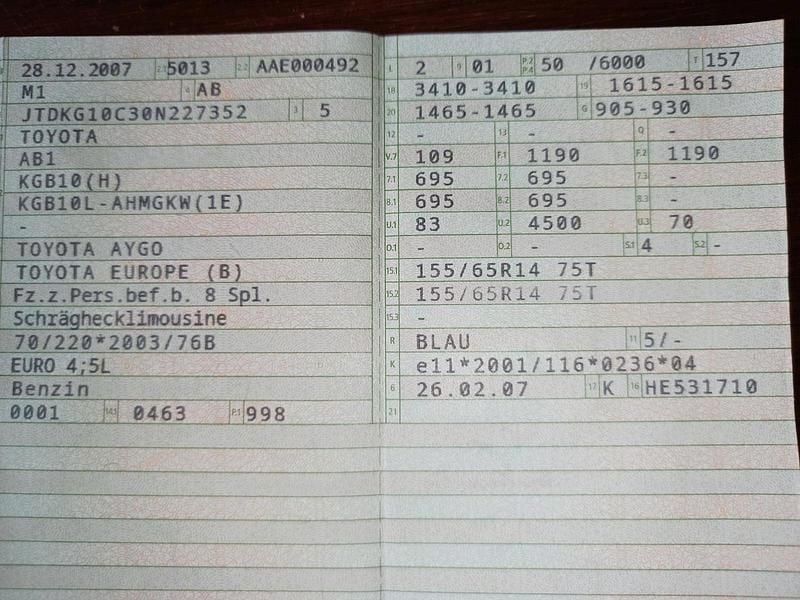 28.12.2007 2.1 5013 2.2 AAE000492
M1 4 AB
JTDKG10C30N227352 3 5
TOYOTA
AB1
KGB10(H)
KGB10L-AHMGKW(1E)
-
TOYOTA AYGO
TOYOTA EUROPE (B)
Fz.z.Pers.bef.b. 8 Spl.
Schräghecklimousine
70/220*2003/76B
EURO 4;5L
Benzin
0001 14.1 0463 P.1 998
L 2 9 01 P.2 P.4 50 /6000 T 157
18 3410-3410 19 1615-1615
20 1465-1465 G 905-930
12 - 13 - Q -
V.7 109 F.1 1190 F.2 1190
7.1 695 7.2 695 7.3 -
8.1 695 8.2 695 8.3 -
U.1 83 U.2 4500 U.3 70
O.1 - O.2 - S.1 4 S.2 -
15.1 155/65R14 75T
15.2 155/65R14 75T
15.3 -
R BLAU 11 5/-
K e11*2001/116*0236*04
6 26.02.07 17 K 16 HE531710
21